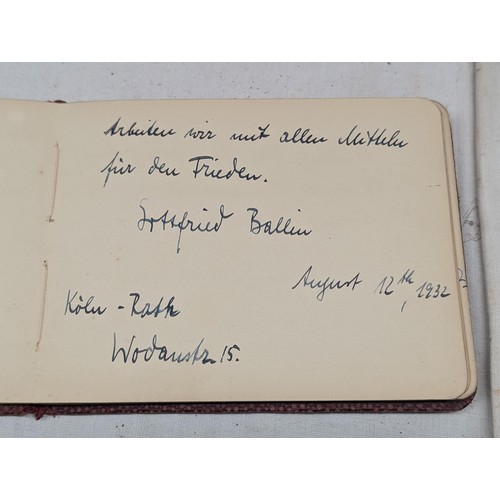 Arbeiten wir mit allen Mitteln
für den Frieden.
Gottfried Ballin
August 12th, 1932
Köln - Rath
Wodanstr. 15.